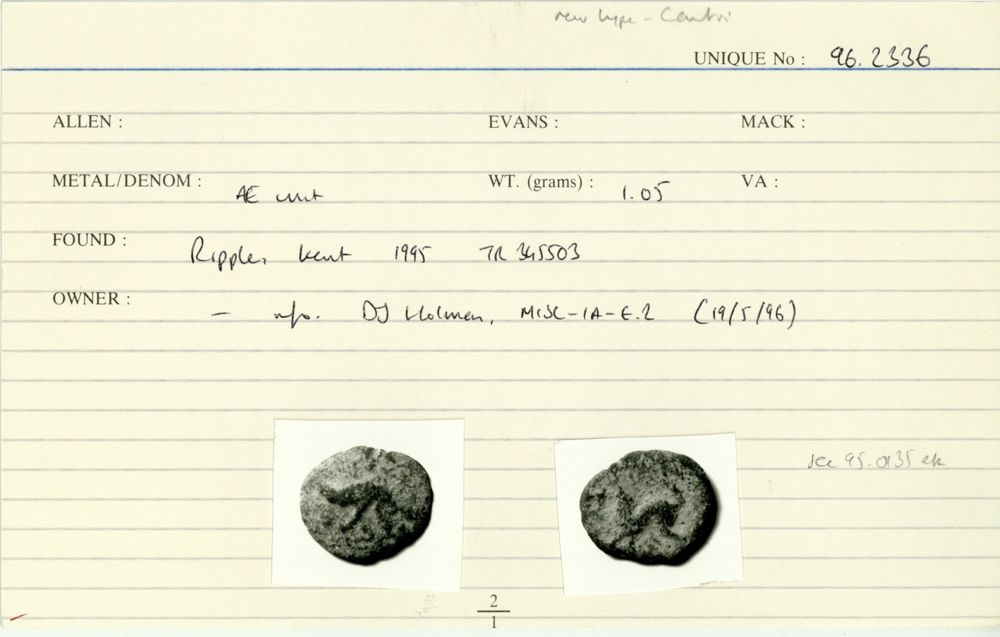 new type - Cantii
UNIQUE No : 96.2336
ALLEN : EVANS : MACK :
METAL/DENOM : AE unit WT. (grams) : 1.05 VA :
FOUND : Ripple, Kent 1995 TR 345503
OWNER : - info. DJ Holman, MISC-IA-E.2 (19/5/96)
see 95.0135 etc
2
1